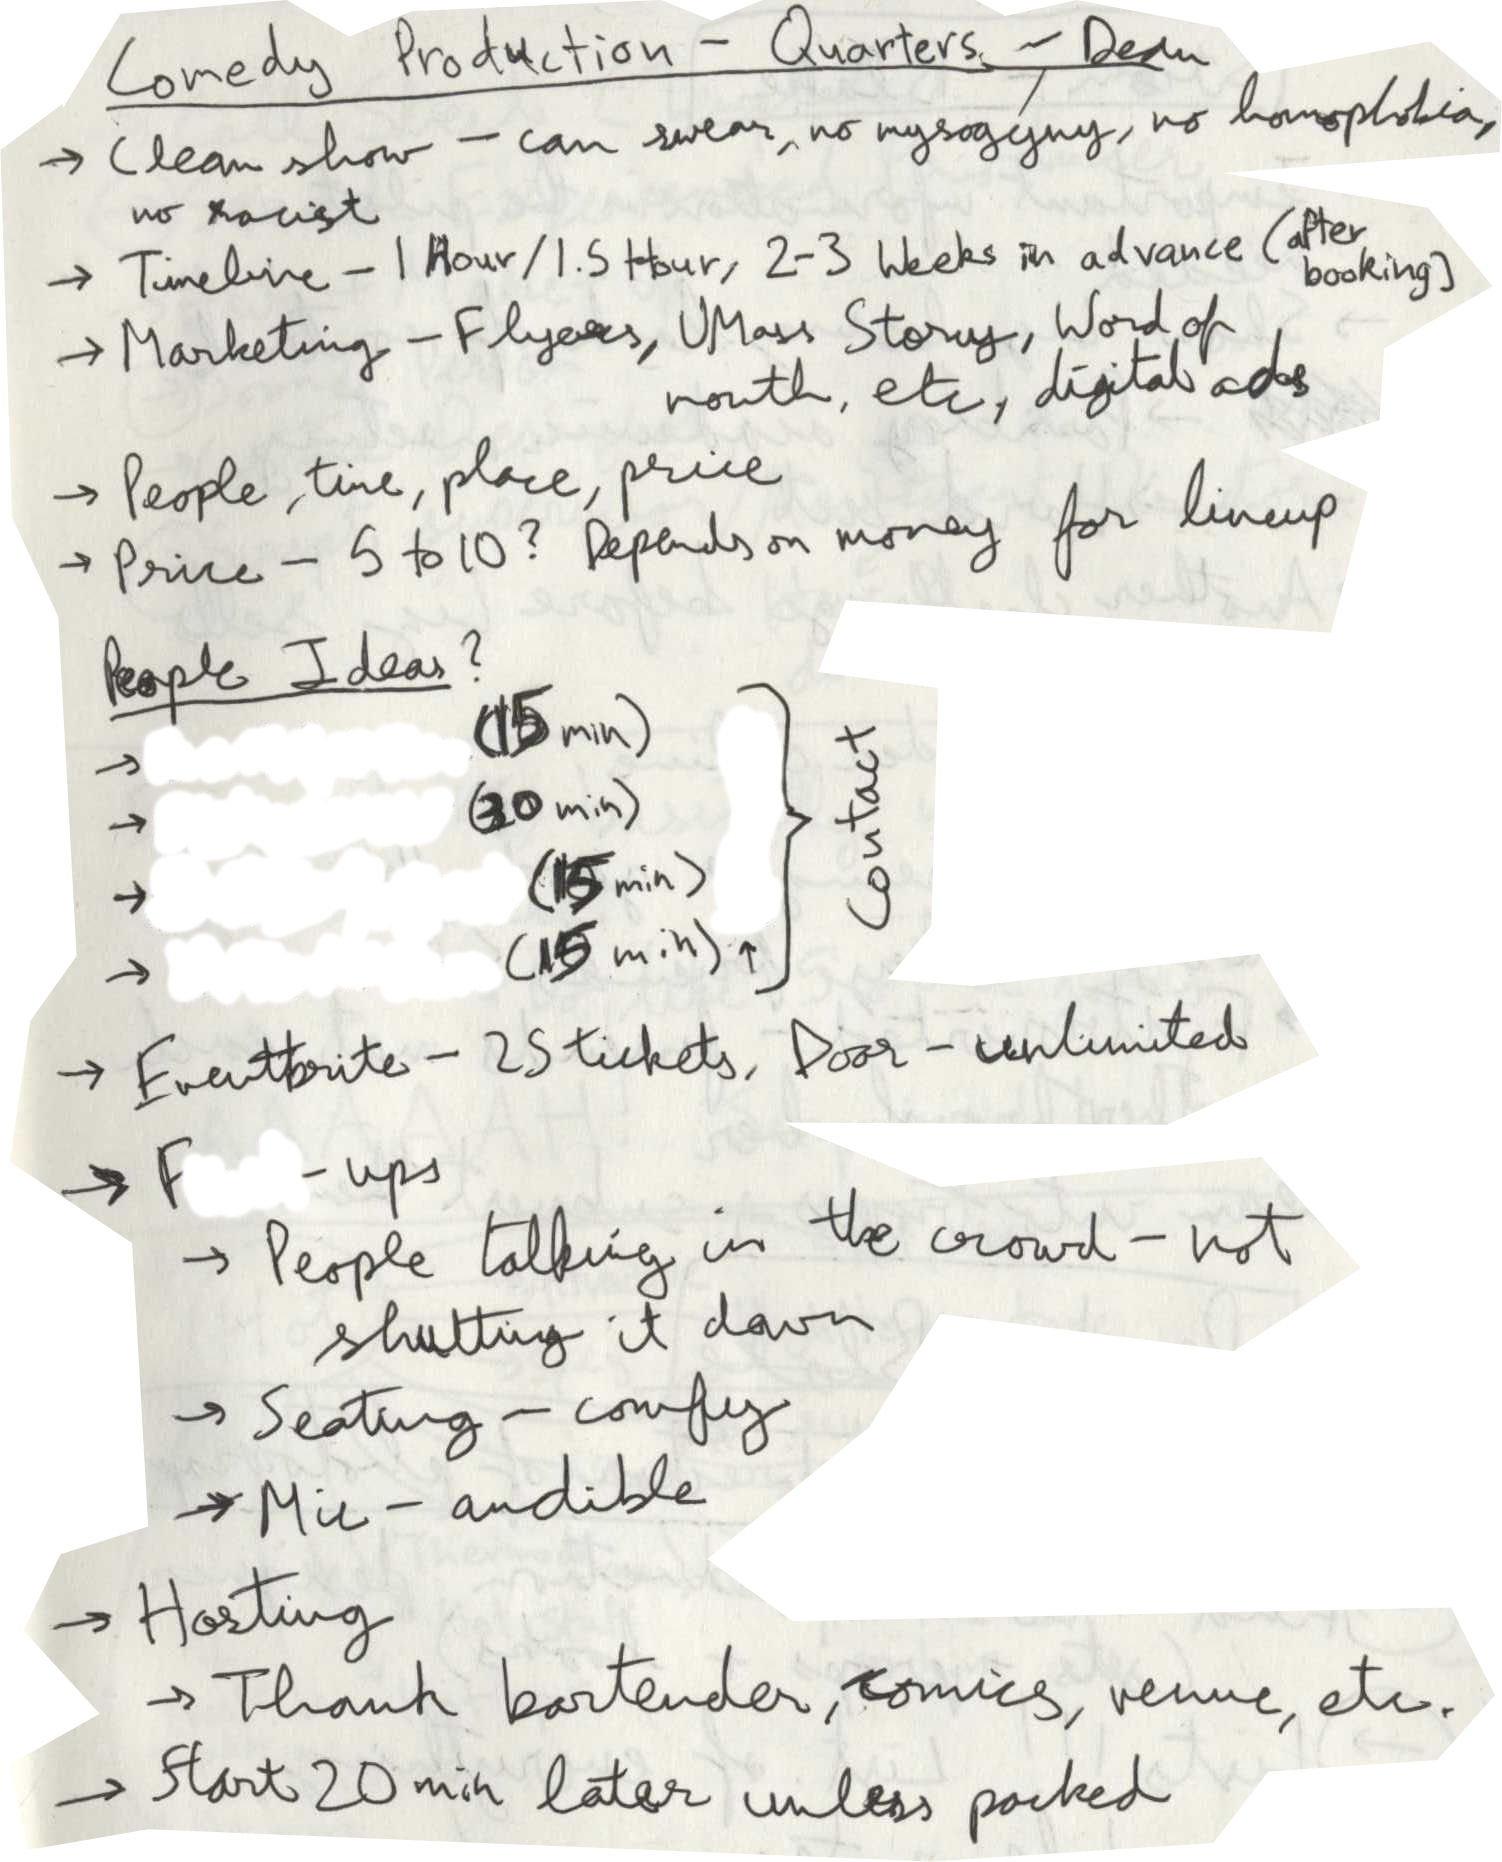 Comedy Production - Quarters - Dean
→ Clean show - can swear, no mysogyny, no homophobia,
no racist
→ Timeline - 1 Hour/1.5 Hour, 2-3 Weeks in advance (after booking)
→ Marketing - Flyers, UMass Story, Word of
mouth, etc, digital ads
→ People, time, place, price
→ Price - 5 to 10? Depends on money for lineup
People Ideas?
→ (15 min)
→ (30 min)
→ (15 min)
→ (15 min) ↑
Contact
→ Eventbrite - 25 tickets, Door - unlimited
→ F - ups
→ People talking in the crowd - not
shutting it down
→ Seating - comfy
→ Mic - audible
→ Hosting
→ Thank bartender, comics, venue, etc.
→ Start 20 min later unless packed